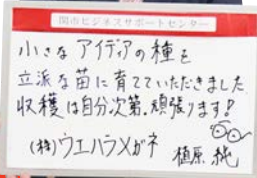 関市ビジネスサポートセンター
小さな アイディアの種を
立派な苗に育てていただきました
収穫は自分次第、頑張ります!
(株)ウエハラメガネ 植原 純